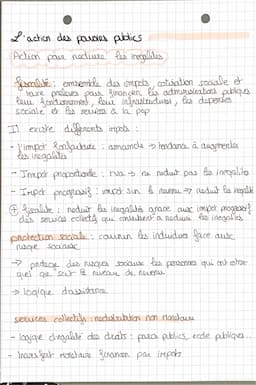 L'action des pouvoirs publics
Action pour réduire les inégalités
fiscalité : ensemble des impots, cotisation sociale et
taxe prélevés pour financer les administrations publiques
leur fonctionnement, leur infrastructures, les dépenses
sociale et les services à la pop
Il existe différents impots :
- l'impot forfaitaire : amande → tendance à augmenter
les inégalités
- Impot proportionnel : tva → ne réduit pas les inégalités
- Impot progressif : impot sur le revenu → réduit les inégalités
⊕ fiscalité : réduit les inégalités grace aux impot progressif
des services collectifs qui contribuent à réduire les inégalités
protection sociale : couvrir les individus face aux
risque sociaux
→ protege des risques sociaux les personnes qui ont
quel que soit le niveau de revenu
→ logique d'assistance
services collectifs : redistribution non monétaire
- logique d'égalité des droits : parcs publics, ecole publique...
- transfert monétaire financer par impots